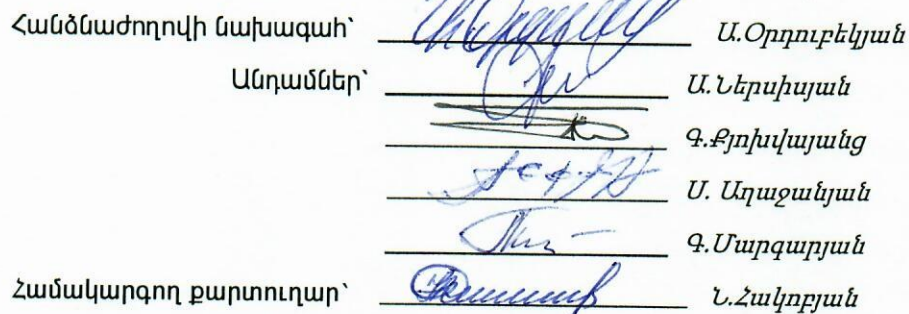 Հանձնաժողովի նախագահ՝ Ա.Օրդուբեկյան
Անդամներ՝ Ա.Ներսիսյան
Գ.Քյոխվայանց
Ս. Աղաջանյան
Գ.Մարգարյան
Համակարգող քարտուղար՝ Ն.Հակոբյան